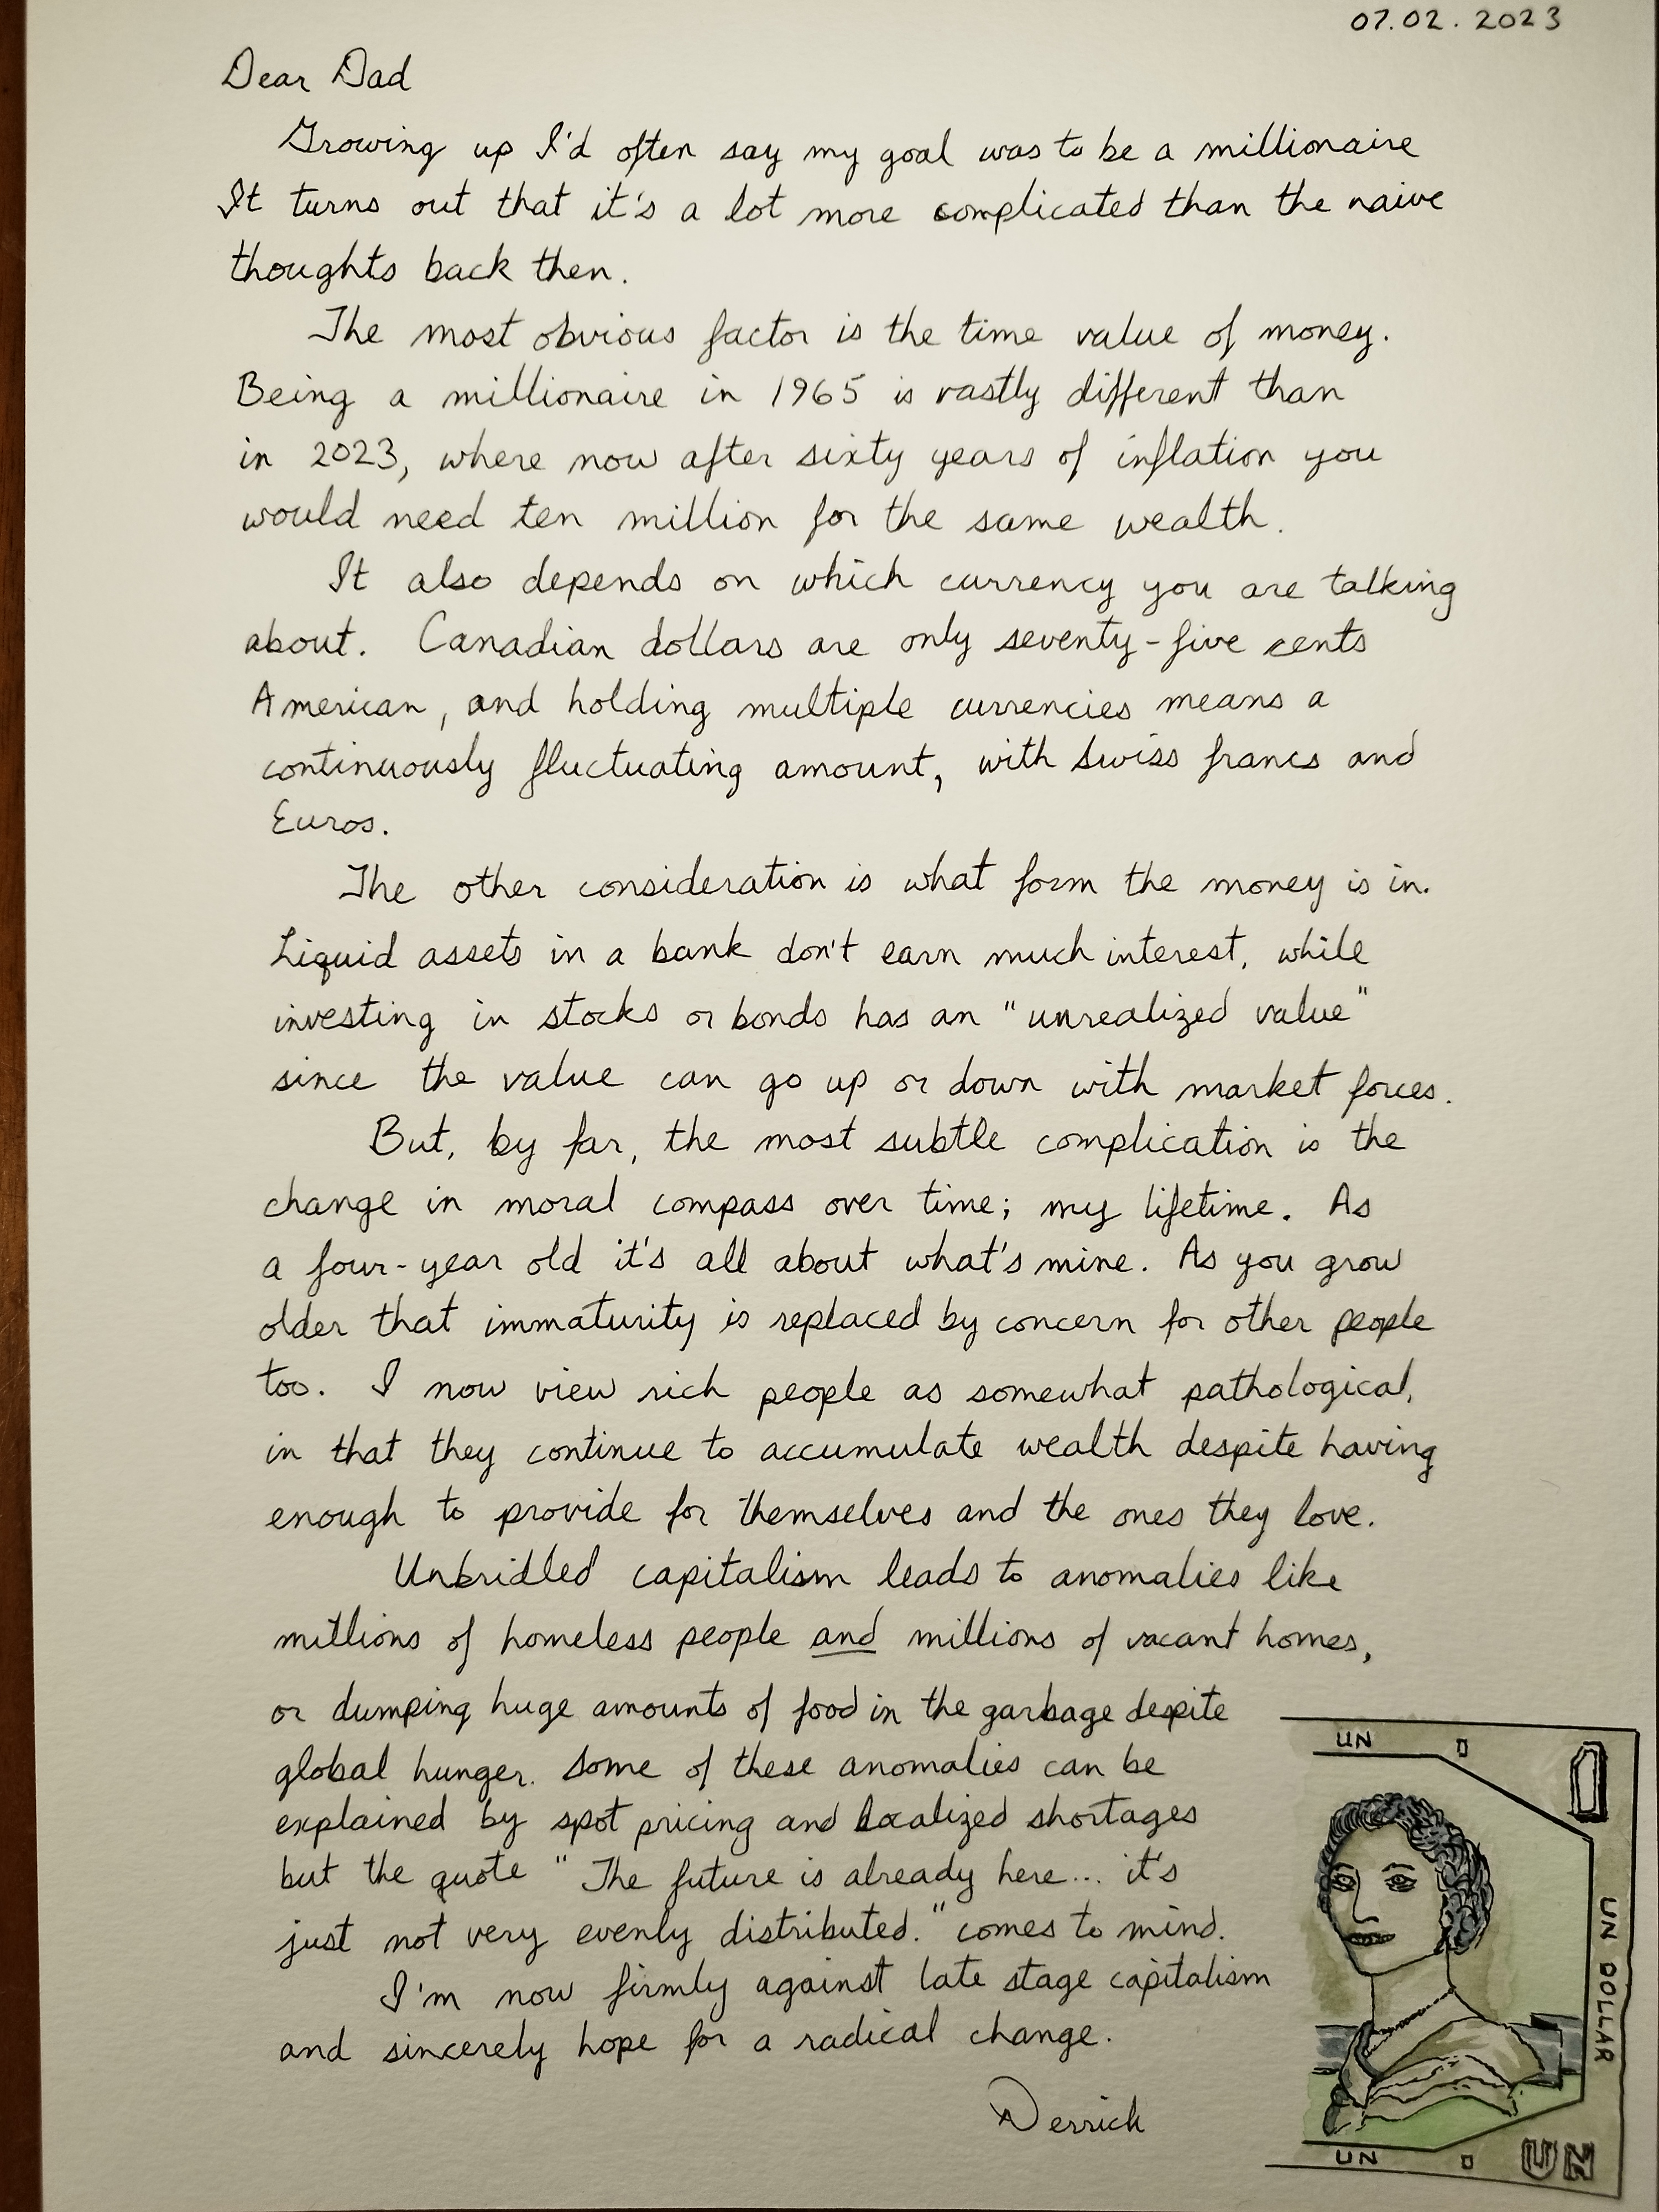 07.02.2023
Dear Dad
Growing up I'd often say my goal was to be a millionaire
It turns out that it's a lot more complicated than the naive
thoughts back then.
The most obvious factor is the time value of money.
Being a millionaire in 1965 is vastly different than
in 2023, where now after sixty years of inflation you
would need ten million for the same wealth.
It also depends on which currency you are talking
about. Canadian dollars are only seventy-five cents
American, and holding multiple currencies means a
continuously fluctuating amount, with Swiss francs and
Euros.
The other consideration is what form the money is in.
Liquid assets in a bank don't earn much interest, while
investing in stocks or bonds has an "unrealized value"
since the value can go up or down with market forces.
But, by far, the most subtle complication is the
change in moral compass over time; my lifetime. As
a four-year old it's all about what's mine. As you grow
older that immaturity is replaced by concern for other people
too. I now view rich people as somewhat pathological,
in that they continue to accumulate wealth despite having
enough to provide for themselves and the ones they love.
Unbridled capitalism leads to anomalies like
millions of homeless people and millions of vacant homes,
or dumping huge amounts of food in the garbage despite
global hunger. Some of these anomalies can be
explained by spot pricing and localized shortages
but the quote "The future is already here... it's
just not very evenly distributed." comes to mind.
I'm now firmly against late stage capitalism
and sincerely hope for a radical change.
Derrick
UN
1
UN DOLLAR
UN
UN